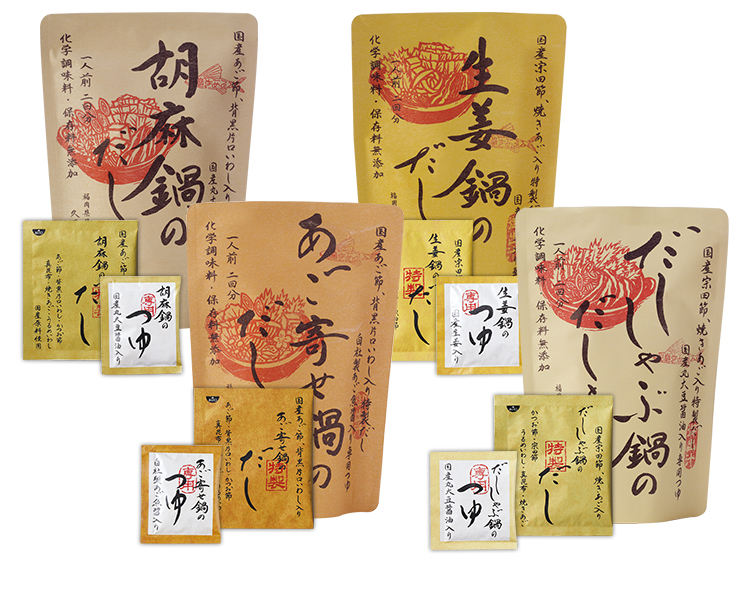 胡麻鍋の
だし
国産あご節、背黒片口いわし入り
国産丸大
一人前 二回分
化学調味料・保存料無添加
国産あご節
胡麻鍋の
だし
あご節・背黒片口いわし・かつお節
真昆布・焼きあご・うるめいわし
国産原料使用
胡麻鍋の
専用
つゆ
国産丸大豆醤油入り
生姜鍋の
だし
国産宗田節、焼きあご入り特製
一人前 二回分
化学調味料・保存料無添加
国産宗田節
生姜鍋の
特製
だし
生姜鍋の
専用
つゆ
国産生姜入り
あご寄せ鍋の
だし
国産あご節、背黒片口いわし入り特製だし
自社製あご魚醤入り
一人前 二回分
化学調味料・保存料無添加
国産あご節、背黒片口いわし入り
あご寄せ鍋の
特製
だし
あご節・背黒片口いわし・かつお節
真昆布
あご寄せ鍋の
専用
つゆ
自社製あご魚醤入り
だししゃぶ鍋の
だし
国産宗田節、焼きあご入り特製だし
国産丸大豆醤油入り専用つゆ
一人前 二回分
化学調味料・保存料無添加
国産宗田節、焼きあご入り
だししゃぶ鍋の
特製
だし
かつお節・宗田節
うるめいわし・真昆布・焼きあご
だししゃぶ鍋の
専用
つゆ
国産丸大豆醤油入り